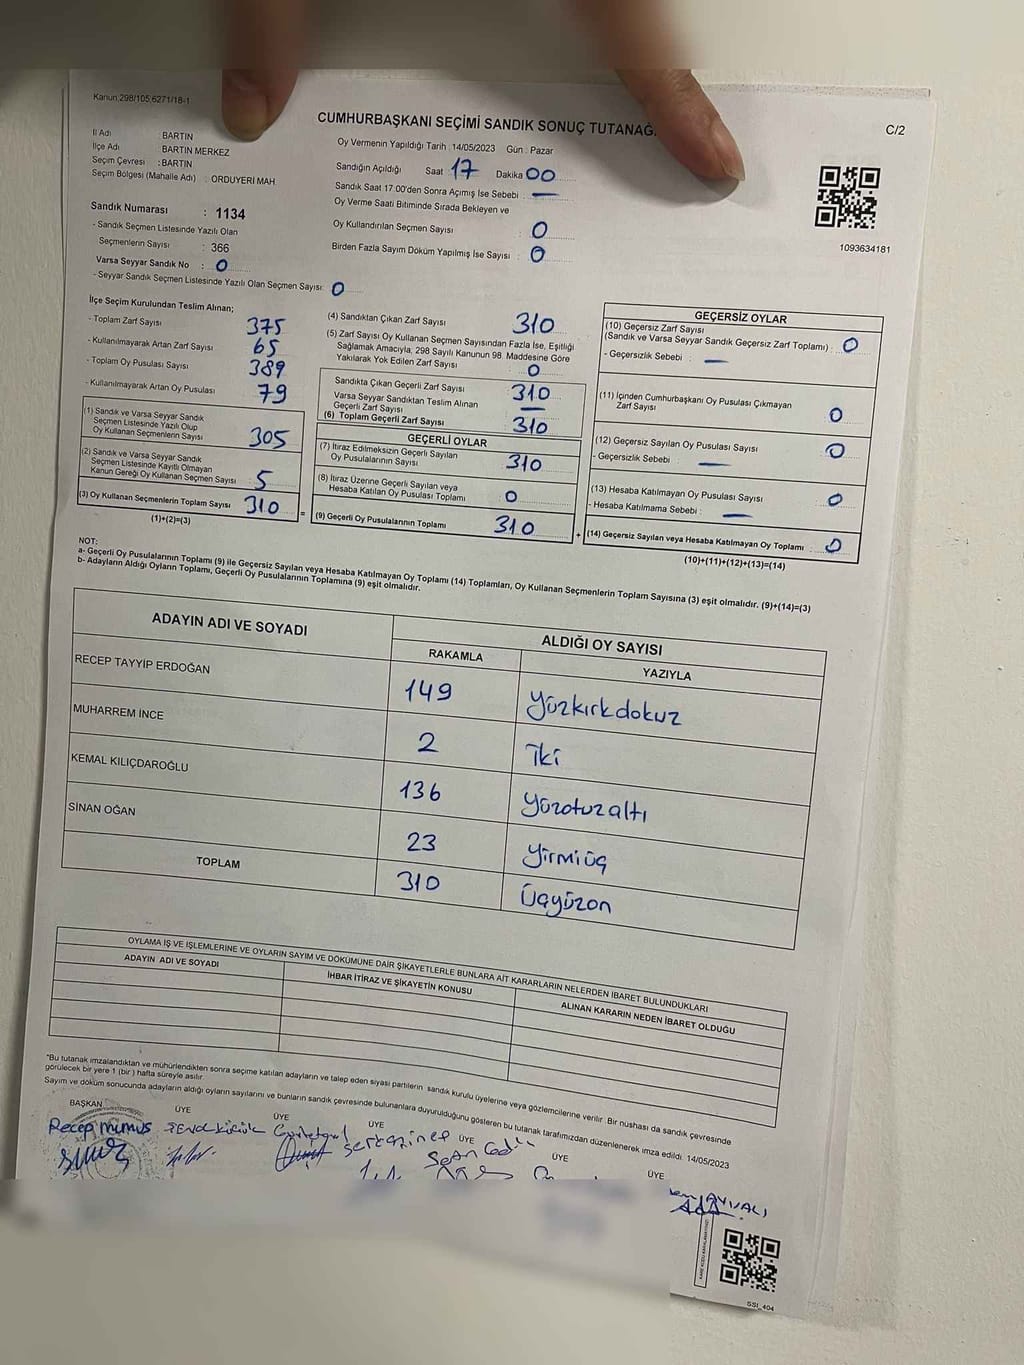 Kanun 298/105 6271/18-1
CUMHURBAŞKANI SEÇİMİ SANDIK SONUÇ TUTANAĞ
C/2
İl Adı BARTIN
İlçe Adı BARTIN MERKEZ
Seçim Çevresi : BARTIN
Seçim Bölgesi (Mahalle Adı) : ORDUYERİ MAH
Sandık Numarası : 1134
- Sandık Seçmen Listesinde Yazılı Olan
Seçmenlerin Sayısı : 366
Varsa Seyyar Sandık No : 0
- Seyyar Sandık Seçmen Listesinde Yazılı Olan Seçmen Sayısı: 0
Oy Vermenin Yapıldığı Tarih : 14/05/2023 Gün : Pazar
Sandığın Açıldığı Saat 17 Dakika 00
Sandık Saat 17.00'den Sonra Açımış İse Sebebi : —
Oy Verme Saati Bitiminde Sırada Bekleyen ve
Oy Kullandırılan Seçmen Sayısı : 0
Birden Fazla Sayım Döküm Yapılmış İse Sayısı : 0
1093634181
İlçe Seçim Kurulundan Teslim Alınan;
- Toplam Zarf Sayısı 375
- Kullanılmayarak Artan Zarf Sayısı 65
- Toplam Oy Pusulası Sayısı 389
- Kullanılmayarak Artan Oy Pusulası 79
(1) Sandık ve Varsa Seyyar Sandık
Seçmen Listesinde Yazılı Olup
Oy Kullanan Seçmenlerin Sayısı 305
(2) Sandık ve Varsa Seyyar Sandık
Seçmen Listesinde Kayıtlı Olmayan
Kanun Gereği Oy Kullanan Seçmen Sayısı 5
(3) Oy Kullanan Seçmenlerin Toplam Sayısı 310
(1)+(2)=(3)
(4) Sandıktan Çıkan Zarf Sayısı 310
(5) Zarf Sayısı Oy Kullanan Seçmen Sayısından Fazla İse, Eşitliği
Sağlamak Amacıyla, 298 Sayılı Kanunun 98. Maddesine Göre
Yakılarak Yok Edilen Zarf Sayısı 0
Sandıkta Çıkan Geçerli Zarf Sayısı 310
Varsa Seyyar Sandıktan Teslim Alınan
Geçerli Zarf Sayısı —
(6) Toplam Geçerli Zarf Sayısı 310
GEÇERLİ OYLAR
(7) İtiraz Edilmeksizin Geçerli Sayılan
Oy Pusulalarının Sayısı 310
(8) İtiraz Üzerine Geçerli Sayılan veya
Hesaba Katılan Oy Pusulası Toplamı 0
= (9) Geçerli Oy Pusulalarının Toplamı 310
GEÇERSİZ OYLAR
(10) Geçersiz Zarf Sayısı
(Sandık ve Varsa Seyyar Sandık Geçersiz Zarf Toplamı) : 0
- Geçersizlik Sebebi : —
(11) İçinden Cumhurbaşkanı Oy Pusulası Çıkmayan
Zarf Sayısı 0
(12) Geçersiz Sayılan Oy Pusulası Sayısı 0
- Geçersizlik Sebebi —
(13) Hesaba Katılmayan Oy Pusulası Sayısı 0
- Hesaba Katılmama Sebebi : —
+ (14) Geçersiz Sayılan veya Hesaba Katılmayan Oy Toplamı : 0
(10)+(11)+(12)+(13)=(14)
NOT:
a- Geçerli Oy Pusulalarının Toplamı (9) ile Geçersiz Sayılan veya Hesaba Katılmayan Oy Toplamı (14) Toplamları, Oy Kullanan Seçmenlerin Toplam Sayısına (3) eşit olmalıdır. (9)+(14)=(3)
b- Adayların Aldığı Oyların Toplamı, Geçerli Oy Pusulalarının Toplamına (9) eşit olmalıdır.
ADAYIN ADI VE SOYADI ALDIĞI OY SAYISI
RAKAMLA YAZIYLA
RECEP TAYYİP ERDOĞAN 149 Yüzkırkdokuz
MUHARREM İNCE 2 İki
KEMAL KILIÇDAROĞLU 136 Yüzotuzaltı
SİNAN OĞAN 23 Yirmiüç
TOPLAM 310 Üçyüzon
OYLAMA İŞ VE İŞLEMLERİNE VE OYLARIN SAYIM VE DÖKÜMÜNE DAİR ŞİKAYETLERLE BUNLARA AİT KARARLARIN NELERDEN İBARET BULUNDUKLARI
ADAYIN ADI VE SOYADI İHBAR İTİRAZ VE ŞİKAYETİN KONUSU ALINAN KARARIN NEDEN İBARET OLDUĞU
"Bu tutanak imzalandıktan ve mühürlendikten sonra seçime katılan adayların ve talep eden siyasi partilerin sandık kurulu üyelerine veya gözlemcilerine verilir. Bir nüshası da sandık çevresinde
görülecek bir yere 1 (bir) hafta süreyle asılır.
Sayım ve döküm sonucunda adayların aldığı oyların sayılarını ve bunların sandık çevresinde bulunanlara duyurulduğunu gösteren bu tutanak tarafımızdan düzenlenerek imza edildi. 14/05/2023
BAŞKAN ÜYE ÜYE ÜYE ÜYE ÜYE ÜYE
Recep
SSI_404